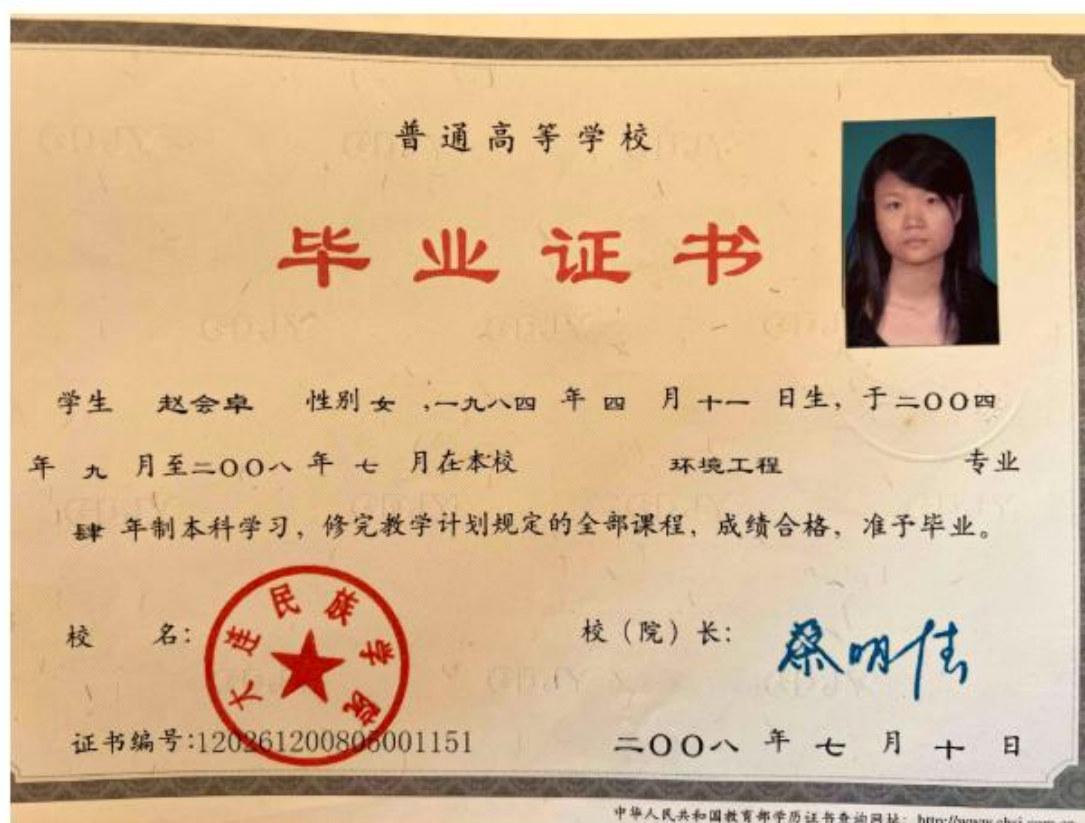 普通高等学校
毕业证书
学生 赵会卓 性别 女 ,一九八四 年 四 月 十一 日生, 于二〇〇四
年 九 月至二〇〇八 年 七 月在本校 环境工程 专业
肆 年制本科学习, 修完教学计划规定的全部课程, 成绩合格, 准予毕业。
校 名: 大连民族学院
校(院)长: 蔡明佳
证书编号:120261200805001151
二〇〇八 年 七 月 十 日
中华人民共和国教育部学历证书查询网址: http://www.chsi.com.cn